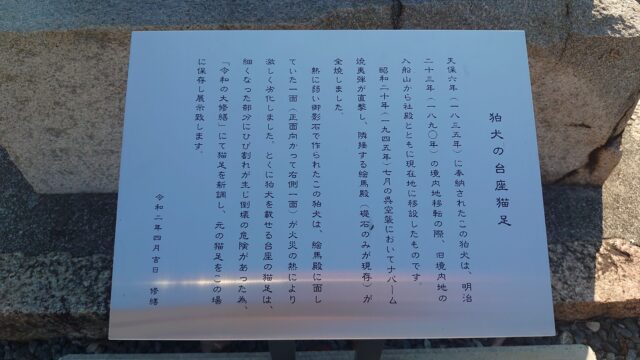 狛犬の台座猫足
天保六年（一八三五年）に奉納されたこの狛犬は、明治
二十三年（一八九〇年）の境内地移転の際、旧境内地の
入船山から社殿とともに現在地に移設したものです。
昭和二十年（一九四五年）七月の呉空襲においてナパーム
焼夷弾が直撃し、隣接する絵馬殿（礎石のみが現存）が
全焼しました。
熱に弱い御影石で作られたこの狛犬は、絵馬殿に面し
ていた一面（正面向かって右側一面）が火災の熱により
激しく劣化しました。とくに狛犬を載せる台座の猫足は、
細くなった部分にひび割れが生じ倒壊の危険があった為、
「令和の大修繕」にて猫足を新調し、元の猫足をこの場
に保存し展示致します。
令和二年四月吉日　修繕